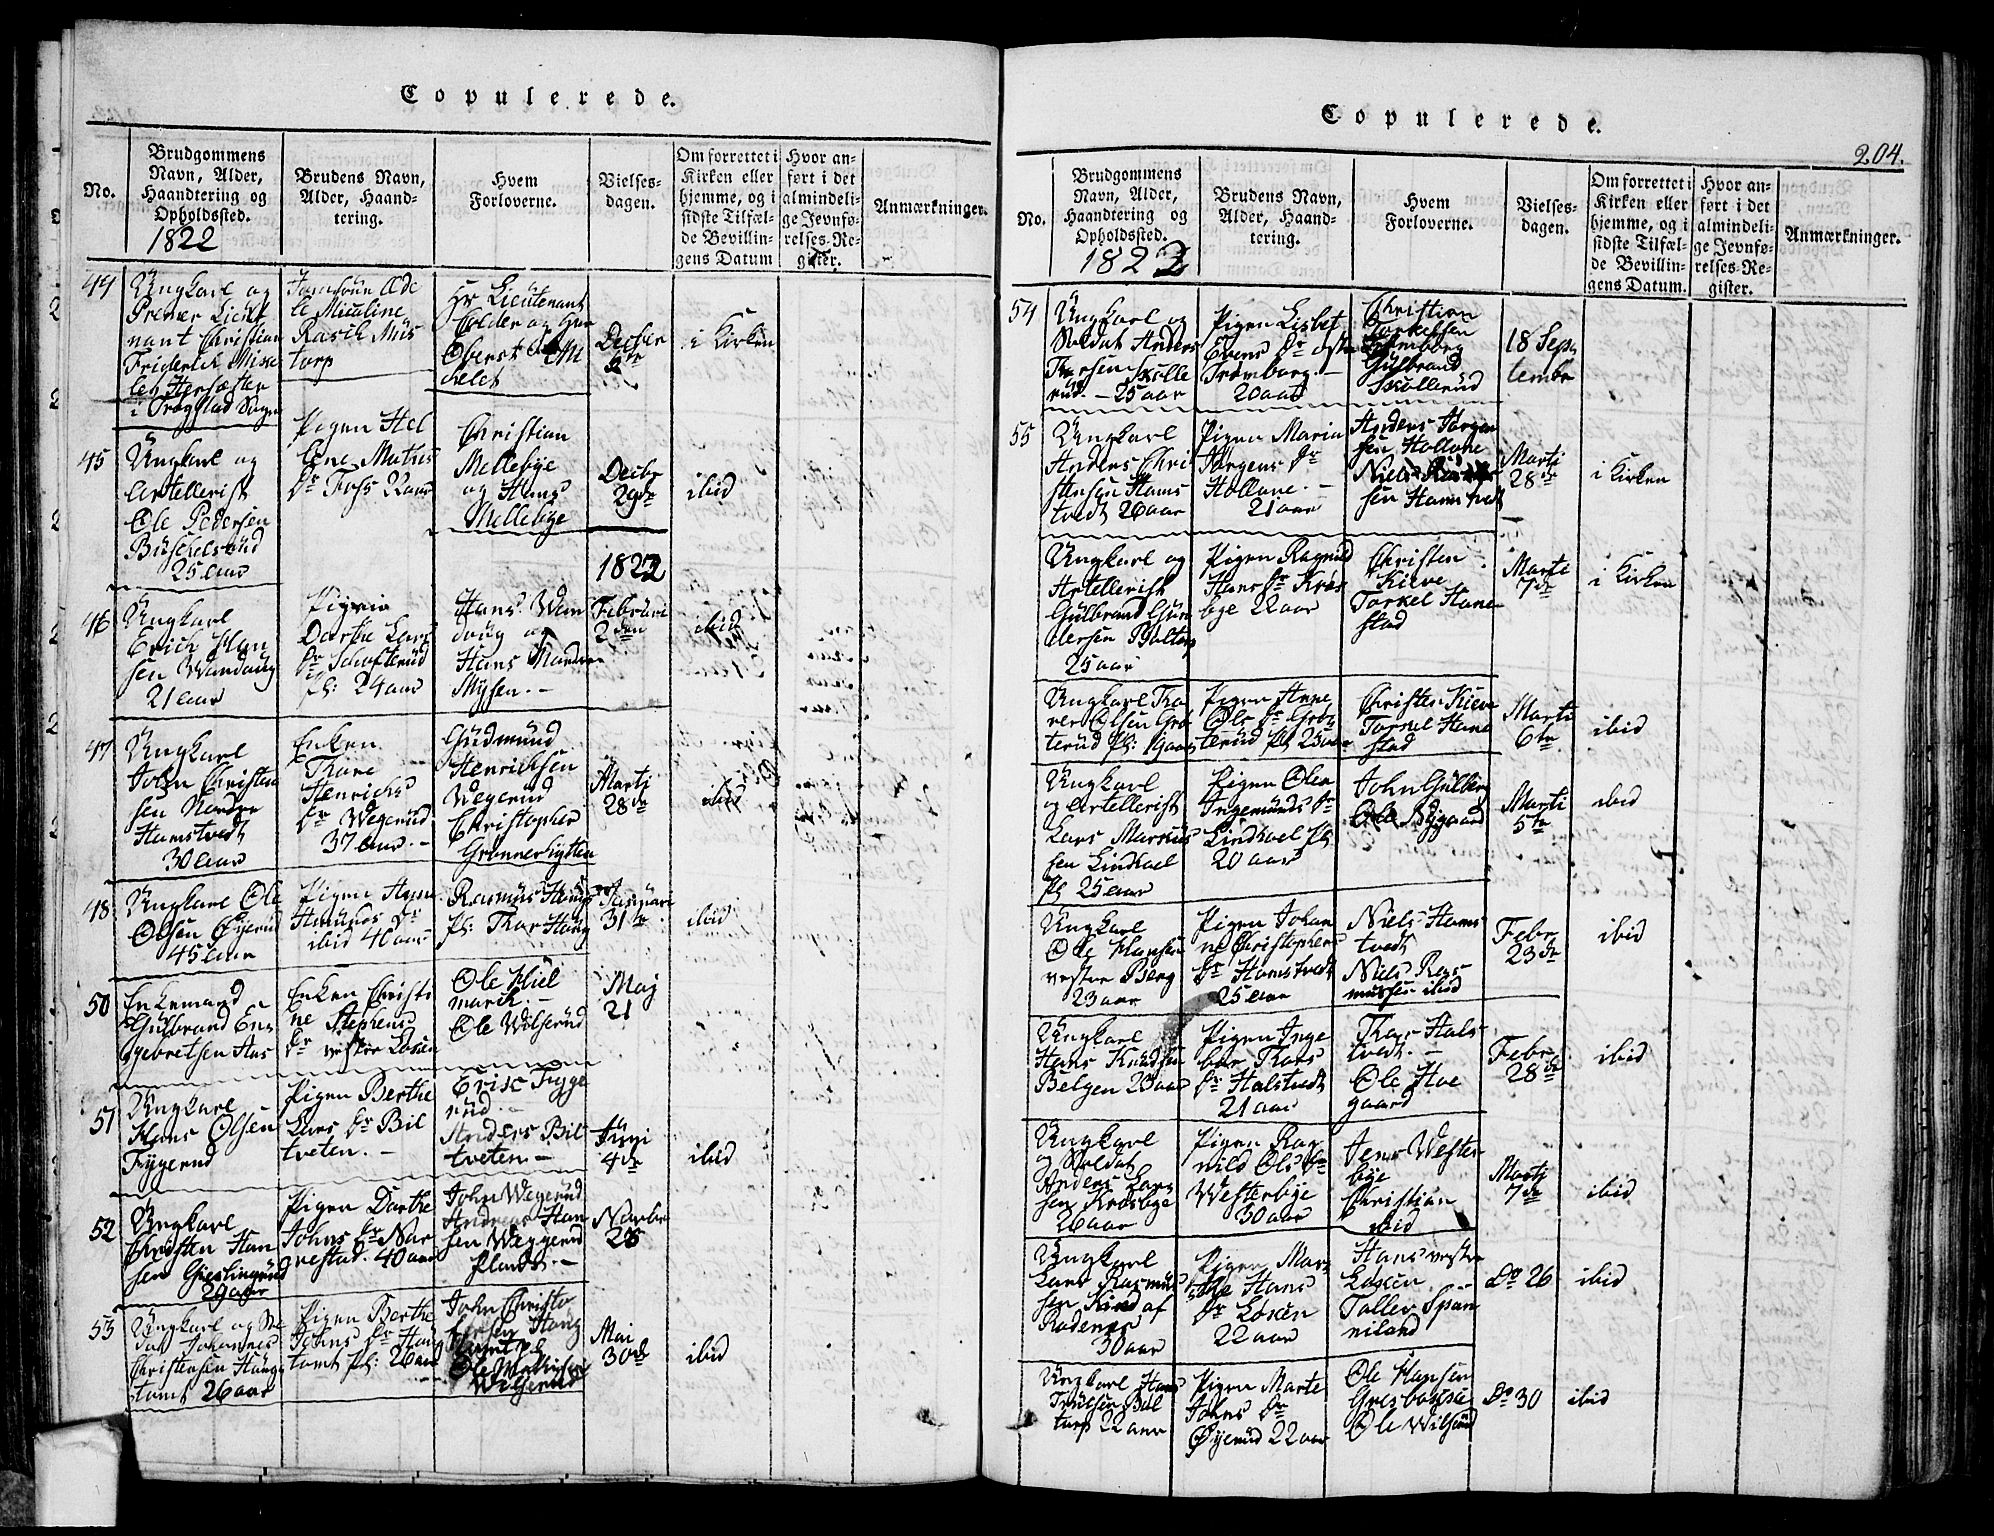 Copulerede.
No.
Brudgommens
Navn, Alder,
Haandtering og
Opholdssted.
1822
Brudens Navn,
Alder, Haand-
tering.
Hvem
Forloverne.
Vielses-
dagen.
Om forrettet i
Kirken eller
hjemme, og i
sidste Tilfæl-
de Bevillin-
gens Datum
Hvor an-
ført i det
almindeli-
ge Jevnfø-
relses-Re-
gister.
Anmærkninger.
44
Ungkarl og
Premier Lieut
nant Christian
Friderich Misse
i Trøgstad Sogn
Jomfrue Ade
le Micaline
Rasch Mus
torp
Hr Lieutenant
Oberst
Decber
i Kirken
45
Ungkarl og
Artellerist
Ole Pedersen
25 aar
Pigen Hel
lene Mathis
Dr Foss
Christian
Mellebye
og Hans
Mellebye
Decbr
29de
ibid
1822
46
Ungkarl
Erich Han
sen Wandaug
21 aar
Pigen
Dorthe Lars
Dr Schofterud
pl: 24 aar
Hans Wan
daug og
Hans
Mysen.-
Februari
2den
ibid
47
Ungkarl
John Christen
sen Nordre
Hamstvedt
30 aar
Enken
Thore
Henrichs
Dr Wegerud
37 aar.-
Gudmund
Henrichsen
Wegerud
Christopher
Grønnerhytten
Martj
28de
ibid
48
Ungkarl Ole
Olsen Øyerud
45 aar
Pigen Anne
Amunds Dr
ibid 40 aar
Rasmus Haug
pl: Thor Haug
Januari
31te
ibid
50
Enkemand
Gulbrand En
gebretsen Aas
Enken Christi
ne Stephens
Dr vestre Losen
Ole Hiel
march.-
Ole Wilserud
Maj
21
51
Ungkarl
Hans Olsen
Trygerud
Pigen Berthe
Lars Dr Bil
tveten.-
Erik Tryge
rud.
Anders Bil
tveten.-
Junj
4de
ibid
52
Ungkarl
Christen Han
sen Gieslingrud
29 aar
Pigen Dorthe
Johns Dr Nar
vestad. 40 aar
John Wegerud
Andreas Han
sen Weggerud
Plads.-
Novbr
28
53
Ungkarl og
Johannes
Christensen Haug
tomt 26 aar
Pigen Berthe
Johns Dr Haug
tomt pl: 26 aar
John Christo
fersen Haug
Wilserud
Mai
30de
ibid
Copulerede.
204.
No.
Brudgommens
Navn, Alder,
Haandtering og
Opholdssted.
1822
Brudens Navn,
Alder, Haand-
tering.
Hvem
Forloverne.
Vielses-
dagen.
Om forrettet i
Kirken eller
hjemme, og i
sidste Tilfæl-
de Bevillin-
gens Datum.
Hvor an-
ført i det
almindeli-
ge Jevnfø-
relses-Re-
gister.
Anmærkninger.
54
Ungkarl og
Soldat Anders
Iversen Skolle
rud.- 25 aar
Pigen Lisbet
Evens Dr østre
Tromborg.-
20 aar
Christian
Torkelsen
Tromborg
Gulbrand
Skollerud
18 Sep
tembr
55
Ungkarl
Anders Chri
stensen Hams
tvedt 26 aar
Pigen Maria
Jørgens Dr
Hollane.-
21 aar
Anders Jørgen
sen Hollane
Niels
sen Hamstvedt
Marti
28de
i Kirken
Ungkarl og
Artellerist
Gulbrand Gun
dersen
25 aar
Pigen Ragnild
Hans Dr Kros
bye 22 aar
Christen
Kieve
Torkel Hane
stad
Marti
7de
i Kirken
Ungkarl Tho
rer Olsen Gro
terud pl:
Pigen Anne
Ols Dr Gro
terud pl 25 aar
Christen Kieve
Torkel Hane
stad
Marti
6te
ibid
Ungkarl
og Artellerist
Lars Marcus
sen Lindhoel
pl 25 aar
Pigen Olea
Ingemunds Dr
Lindhoel pl
20 aar
John Gulberg
Ole Nygaard
Marti
5te
ibid
Ungkarl
Ole Hansen
vestre Berg
23 aar
Pigen Johan
ne Christophers
Dr Hamstvedt
25 aar
Niels Hams
tvedt
Niels Ras
mussen ibid
Febr
23de
ibid
Ungkarl
Hans Knudsen
Belgen 23 aar
Pigen Inge
bor Thors
Dr Halstvedt
21 aar
Thor Hals
tvedt.-
Ole Hoe
gaard
Febr
28de
ibid
Ungkarl
og Soldat
Anders Lars
sen Krosbye
26 aar
Pigen Rag
nild Ols Dr
Westerbye
30 aar
Jens Wester
bye
Christian
ibid
Martj
7de
ibid
Ungkarl
Lars Rasmus
sen Kind af
Rødenæs
30 aar
Pigen Mar
the Hans
Dr Losen
22 aar
Hans vestre
Losen
Tollev Span
niland
Do 26
ibid
Ungkarl Hans
Truelsen Bul
torp 22 aar
Pigen Marte
Johns Dr
Øyerud 22 aar
Ole Hansen
Ole Wilserud
Do 30
ibid